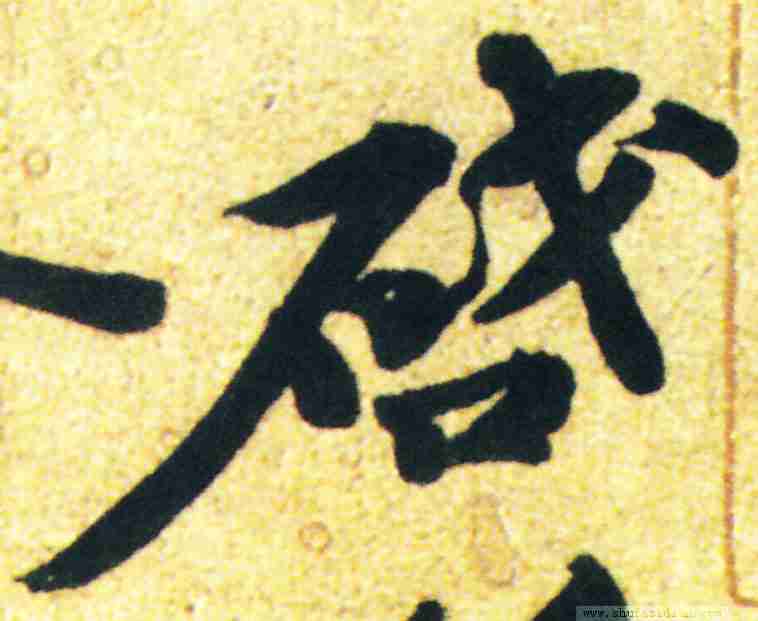 啓
www.shufazidian.com